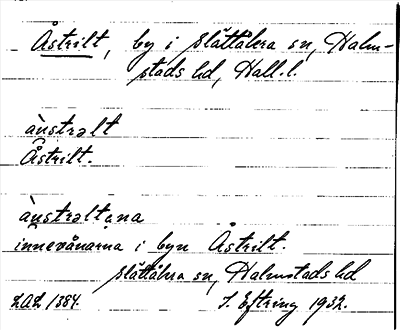 Åstrilt, by i Slättåkra sn, Halm-
stads hd, Hall. l.
ànstrəlt
Åstrilt.
ànstrəltana
innevånarna i byn Åstrilt.
Slättåkra sn, Halmstads hd
LAL 1384. I. Eftring 1932.